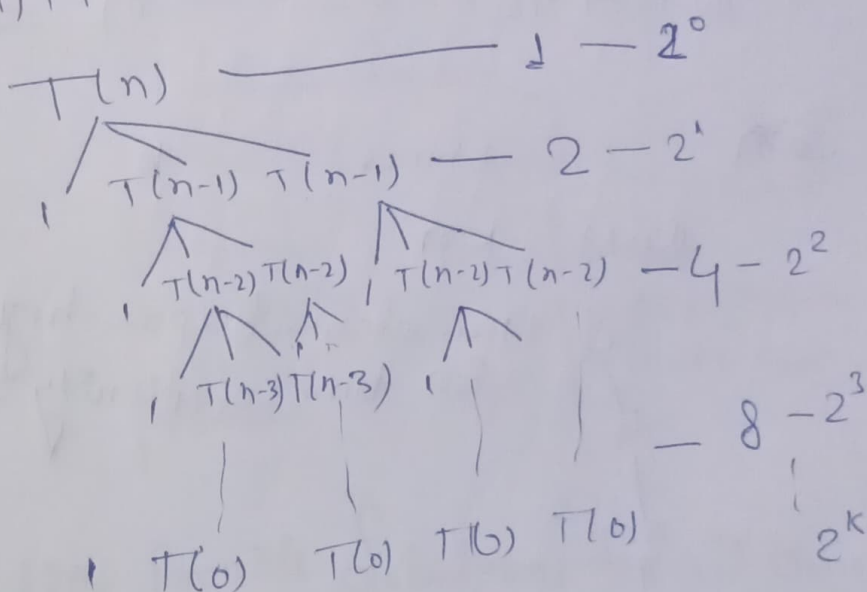 T(n) — 1 — 2⁰
1 T(n-1) T(n-1) — 2 — 2¹
1 T(n-2) T(n-2) 1 T(n-2) T(n-2) — 4 — 2²
1 T(n-3) T(n-3) 1 — 8 — 2³
1 T(0) T(0) T(0) T(0) 2ᵏ